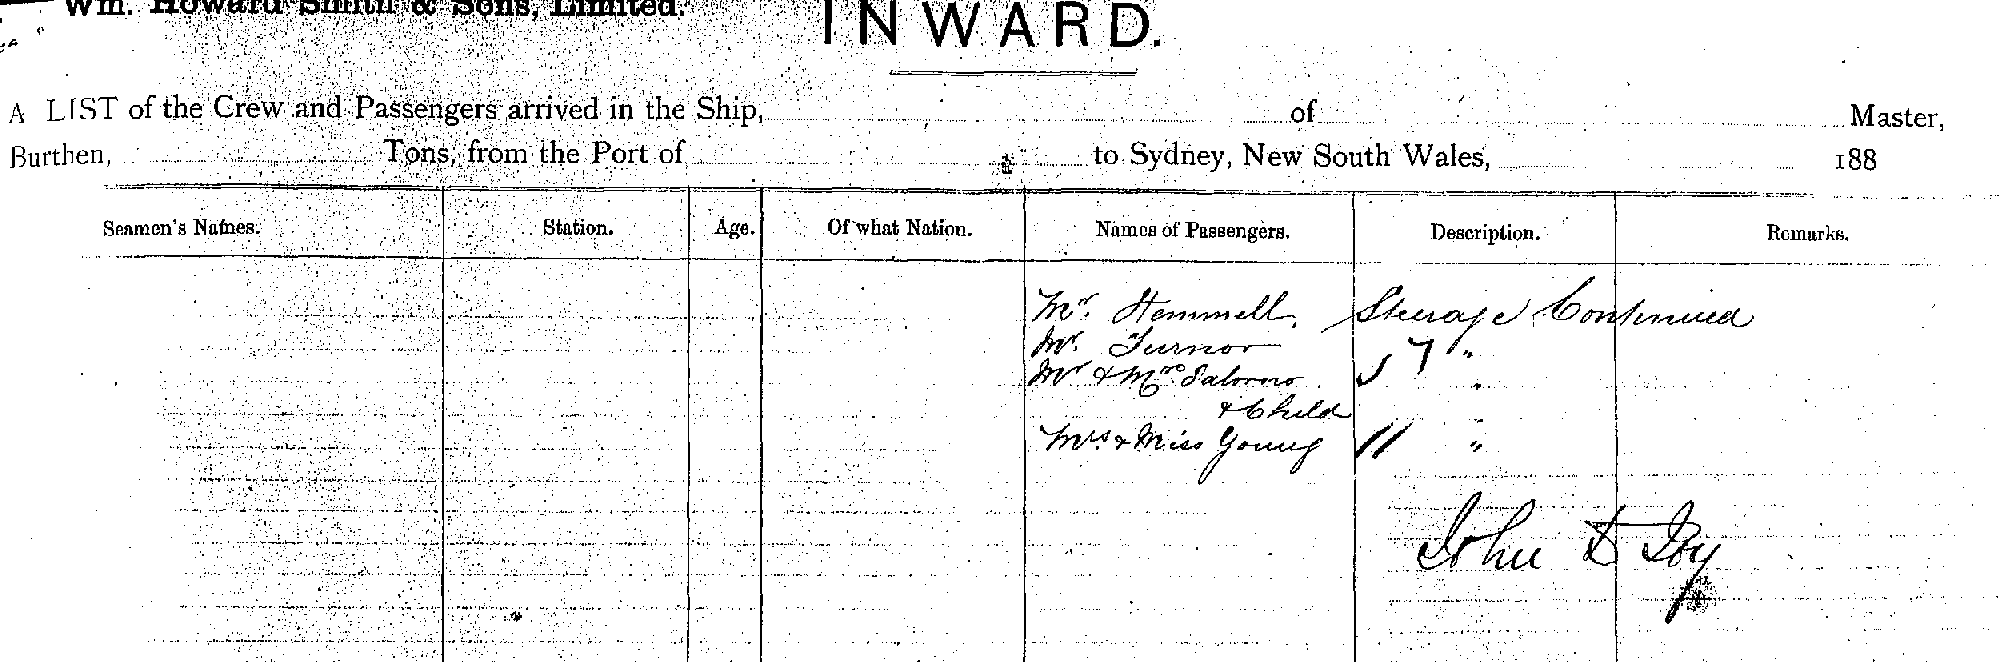 Wm. Howard Smith & Sons, Limited.
INWARD.
A LIST of the Crew and Passengers arrived in the Ship, of Master,
Burthen, Tons, from the Port of to Sydney, New South Wales, 188
Seamen's Names. Station. Age. Of what Nation. Names of Passengers. Description. Remarks.
Mr. Hemmell. Steerage Continued
Mr. Turnor "
Mr & Mrs Salomo "
& Child
Mrs. & Miss Young "
John